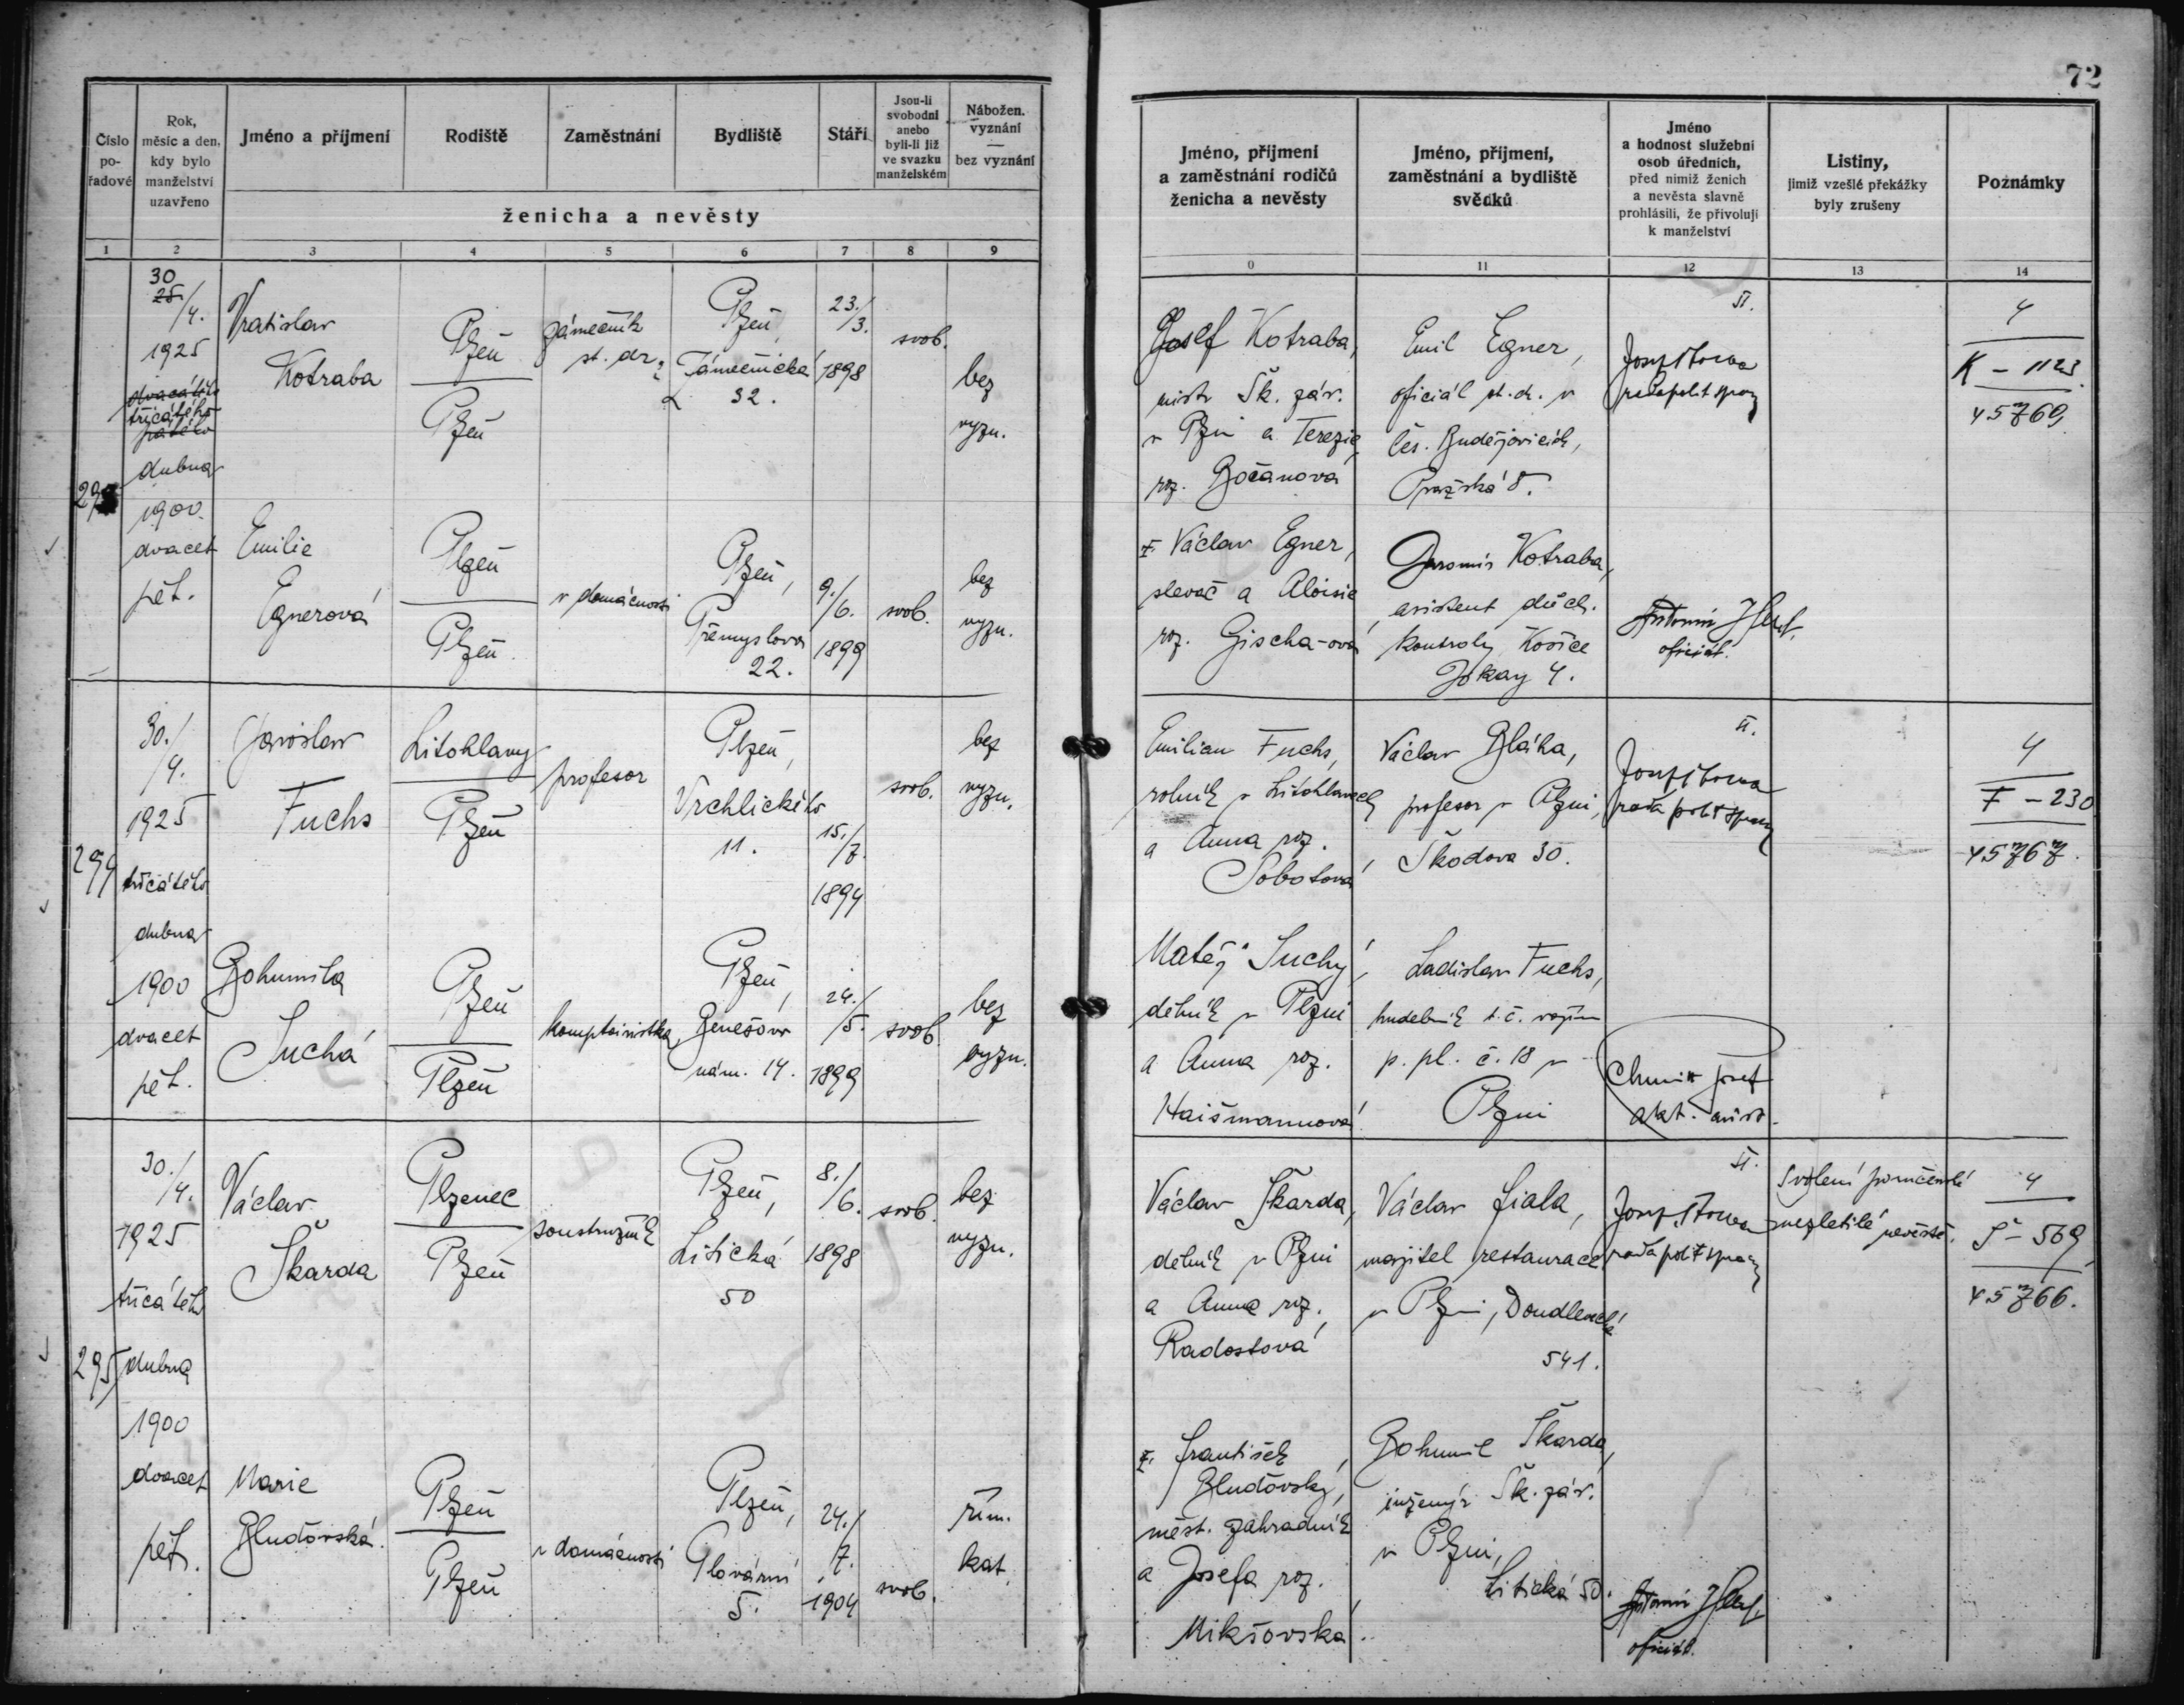 72
Číslo
po-
řadové
Rok,
měsíc a den,
kdy bylo
manželství
uzavřeno
Jméno a příjmení
Rodiště
Zaměstnání
Bydliště
Stáří
Jsou-li
svobodni
anebo
byli-li již
ve svazku
manželském
Nábožen.
vyznání
—
bez vyznání
ženicha a nevěsty
1 2 3 4 5 6 7 8 9
Jméno, příjmení
a zaměstnání rodičů
ženicha a nevěsty
Jméno, příjmení,
zaměstnání a bydliště
svědků
Jméno
a hodnost služební
osob úředních,
před nimiž ženich
a nevěsta slavně
prohlásili, že přivolují
k manželství
Listiny,
jimiž vzešlé překážky
byly zrušeny
Poznámky
0 11 12 13 14
30
25./4.
1925
dvacátého
třicátého
pátého
dubna
1900
dvacet
pět.
Vratislav
Kotraba
Plzeň
Plzeň
zámečník
st. dr.
Plzeň,
Zámečnická
32.
23./3.
1898
svob.
bez
vyzn.
Emilie
Egnerová
Plzeň
Plzeň
v domácnosti
Plzeň,
Přemyslova
22.
9./6.
1899
svob.
bez
vyzn.
Josef Kotraba,
mistr Šk. záv.
v Plzni a Terezie,
roz. Bočanová
Emil Egner,
oficiál st. dr. v
Čes. Budějovicích,
Pražská 8.
II.
4
K - 1123
45769
Václav Egner,
slevač a Aloisie
roz. Gischa-ová
Jaromír Kotraba,
asistent důch.
kontroly Košice
Jókay 4.
oficiál.
294
30./4.
1925
třicátého
dubna
1900
dvacet
pět.
Jaroslav
Fuchs
Litohlavy
Plzeň
profesor
Plzeň,
Vrchlického
11.
15./7.
1894
svob.
bez
vyzn.
Bohumila
Suchá
Plzeň
Plzeň
komptoiristka
Plzeň,
Benešovo
nám. 14.
24./5.
1899
svob.
bez
vyzn.
Emilian Fuchs,
rolník v Litohlavech
a Anna roz.
Sobotová
Václav Bláha,
profesor v Plzni,
Škodova 30.
II.
4
F - 230
45767.
Matěj Suchý,
dělník v Plzni
a Anna roz.
Haišmannová
Ladislav Fuchs,
hudebník t. č. vojín
p. pl. č. 18 v
Plzni
Josef
295
30./4.
1925
třicátého
dubna
1900
dvacet
pět.
Václav
Škarda
Plzenec
Plzeň
soustružník
Plzeň,
Litická
50
8./6.
1898
svob.
bez
vyzn.
Marie
Bludovská
Plzeň
Plzeň
v domácnosti
Plzeň,
Plovární
5.
24./7.
1904
svob.
řím.
kat.
Václav Škarda,
dělník v Plzni
a Anna roz.
Radostová
Václav Fiala,
majitel restaurace
v Plzni, Doudlevecká
541.
II.
Svolení poručenské
nezletilé nevěstě.
4
Š - 569
45766.
František
Bludovský,
měst. zahradník
a Josefa roz.
Mikšovská.
Bohumil Škarda,
inženýr Šk. záv.
v Plzni,
Litická 50.
oficiál.